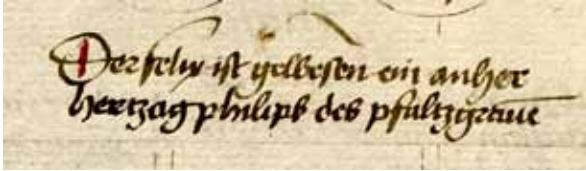 Der selig ist gewesen ein anher
hertzog philips des pfaltzgraue